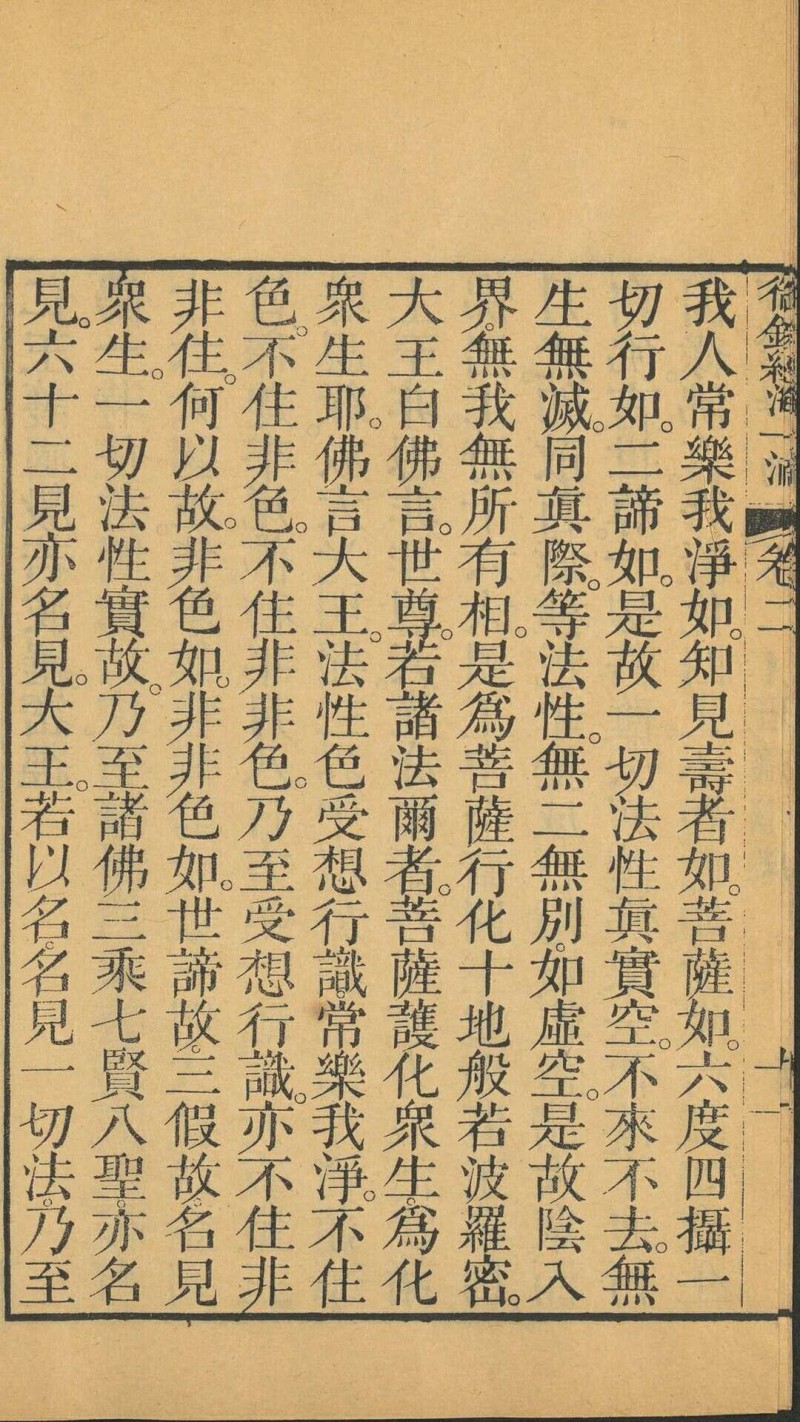 卷二
十一
我人常樂我淨如。知見壽者如。菩薩如。六度四攝一
切行如。二諦如。是故一切法性眞實空。不來不去。無
生無滅。同眞際。等法性。無二無別。如虛空。是故陰入
界。無我無所有相。是爲菩薩行化十地般若波羅密。
大王白佛言。世尊。若諸法爾者。菩薩護化衆生。爲化
衆生耶。佛言大王。法性色受想行識。常樂我淨。不住
色。不住非色。不住非非色。乃至受想行識。亦不住非
非住。何以故。非色如。非非色如。世諦故。三假故。名見
衆生。一切法性實故。乃至諸佛三乘七賢八聖。亦名
見。六十二見亦名見。大王。若以名。名見一切法。乃至